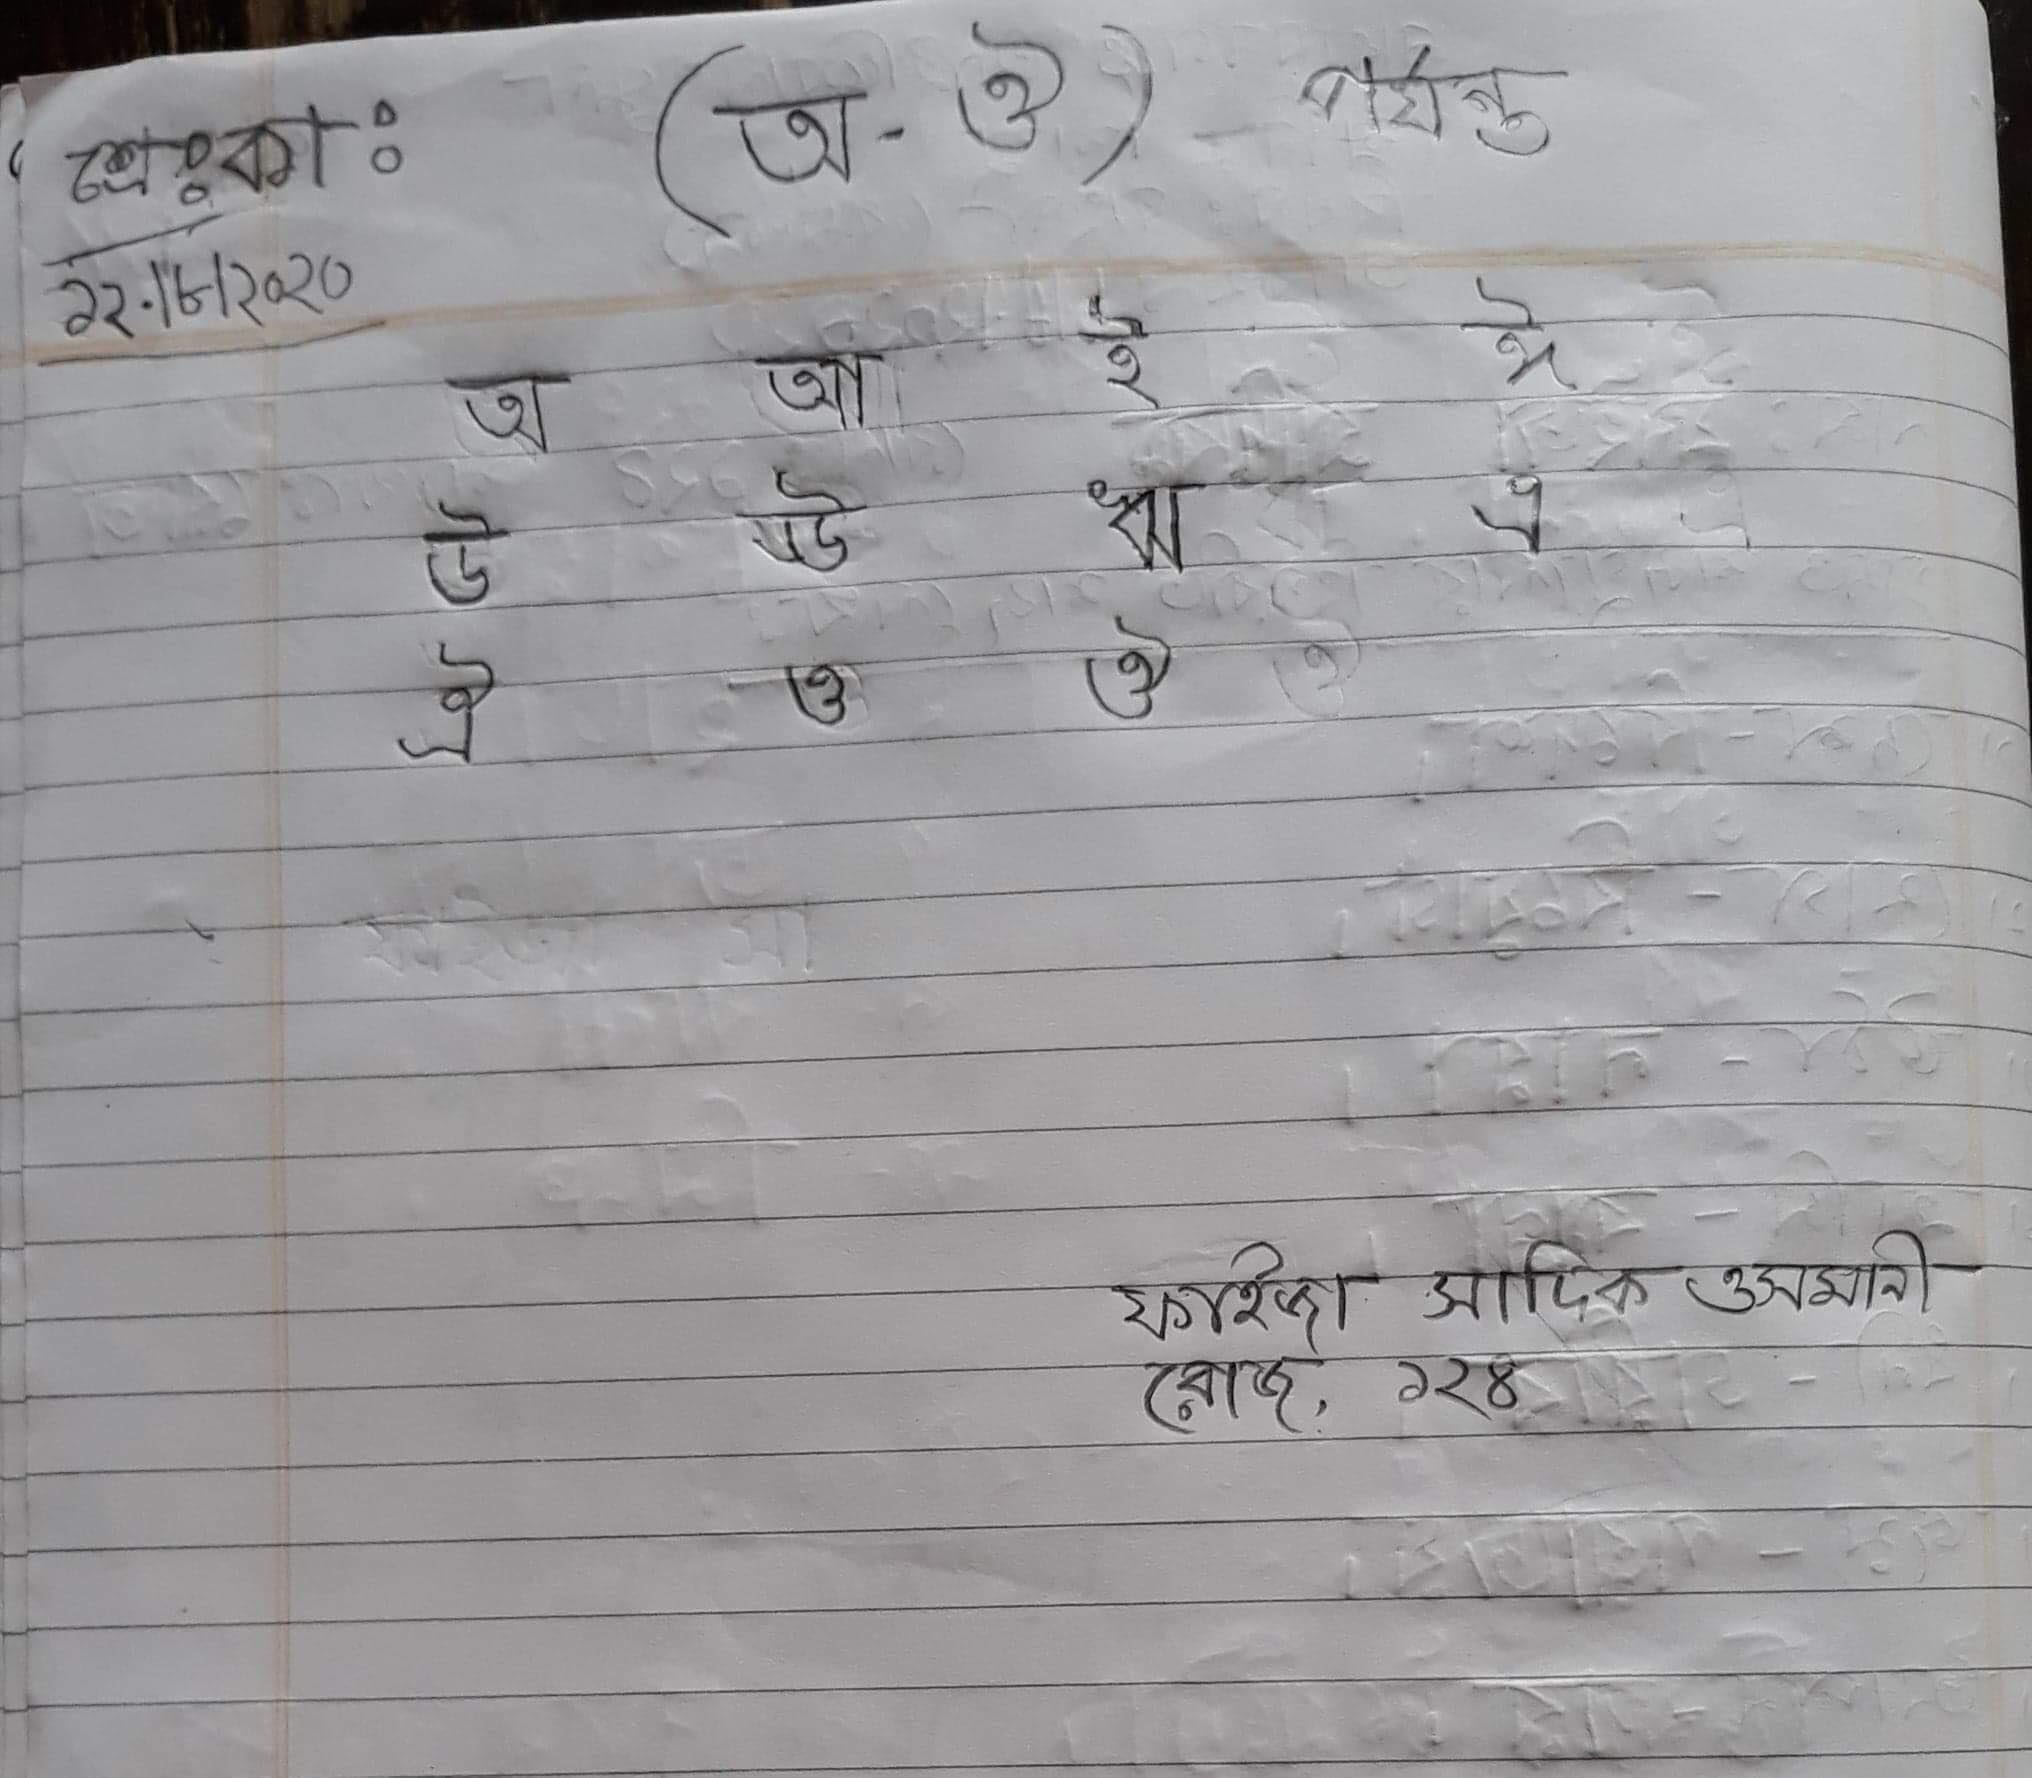 শ্রেঃকাঃ (অ - ঔ) পর্যন্ত
২২/৮/২০২০
অ আ ই ঈ
উ ঊ ঋ এ
ঐ ও ঔ
ফাইজা সাদিক ওসমানী
রোজ, ১২৪